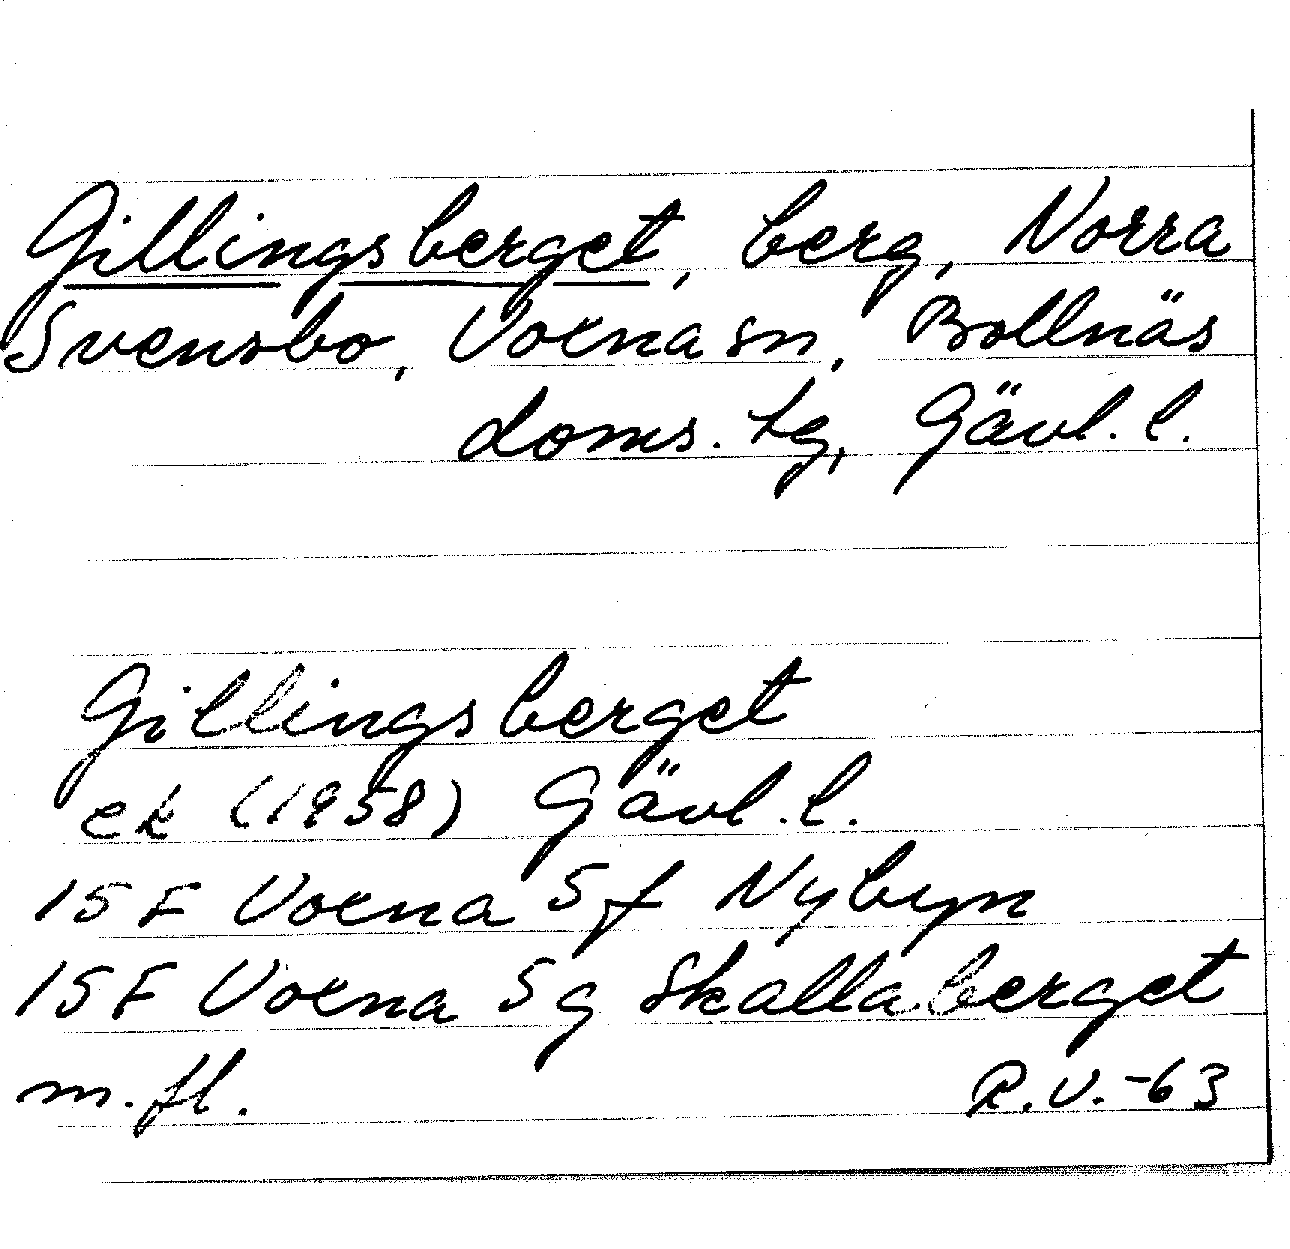 Gillingsberget, berg, Norra
Svensbo, Voxna sn, Bollnäs
doms. tg, Gävl. l.
Gillingsberget
ek (1958) Gävl. l.
15 F Voxna 5 f Nybyn
15 F Voxna 5 g Skallaberget
m. fl. R.V.-63